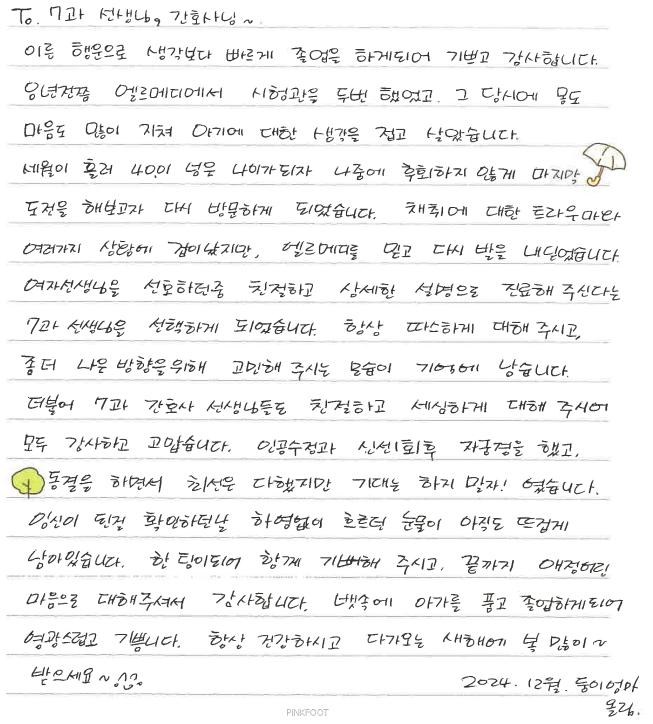 To. 7과 선생님, 간호사님~
이른 행운으로 생각보다 빠르게 졸업을 하게되어 기쁘고 감사합니다.
8년전쯤 엘르메디에서 시험관을 두번 했었고. 그 당시에 몸도
마음도 많이 지쳐 아기에 대한 생각을 접고 살았습니다.
세월이 흘러 40이 넘은 나이가되자 나중에 후회하지 않게 마지막
도전을 해보고자 다시 방문하게 되었습니다. 채취에 대한 트라우마와
여러가지 상황에 겁이났지만, 엘르메디를 믿고 다시 발을 내딛었습니다.
여자선생님을 선호하던중 친절하고 상세한 설명으로 진료해 주신다는
7과 선생님을 선택하게 되었습니다. 항상 따스하게 대해 주시고,
좀더 나은 방향을위해 고민해 주시는 모습이 기억에 남습니다.
더불어 7과 간호사 선생님들도 친절하고 세심하게 대해 주시어
모두 감사하고 고맙습니다. 인공수정과 신선1회후 자궁경을 했고,
동결을 하면서 최선은 다했지만 기대는 하지 말자! 였습니다.
임신이 된걸 확인하던날 하염없이 흐르던 눈물이 아직도 뜨겁게
남아있습니다. 한 팀이되어 함께 기뻐해 주시고, 끝까지 애정어린
마음으로 대해주셔서 감사합니다. 뱃속에 아가를 품고 졸업하게되어
영광스럽고 기쁩니다. 항상 건강하시고 다가오는 새해에 복 많이~
받으세요~
2024. 12월. 둥이엄마
올림.
PINKFOOT